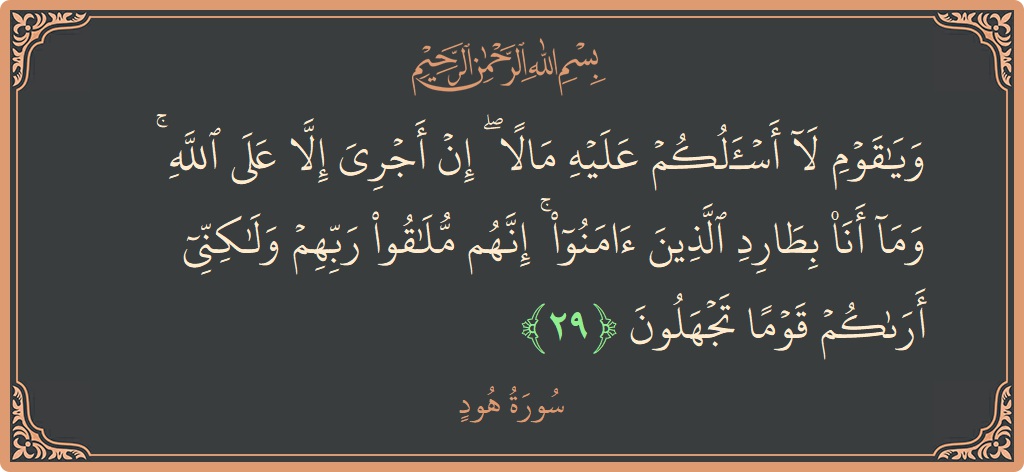 بِسْمِ اللَّهِ الرَّحْمَٰنِ الرَّحِيمِ
وَيَـٰقَوْمِ لَآ أَسْـَٔلُكُمْ عَلَيْهِ مَالًا ۖ إِنْ أَجْرِىَ إِلَّا عَلَى ٱللَّهِ ۚ
وَمَآ أَنَا۠ بِطَارِدِ ٱلَّذِينَ ءَامَنُوٓا۟ ۚ إِنَّهُم مُّلَـٰقُوا۟ رَبِّهِمْ وَلَـٰكِنِّىٓ
أَرَىٰكُمْ قَوْمًا تَجْهَلُونَ ﴿٢٩﴾
سُورَةُ هُودٍ